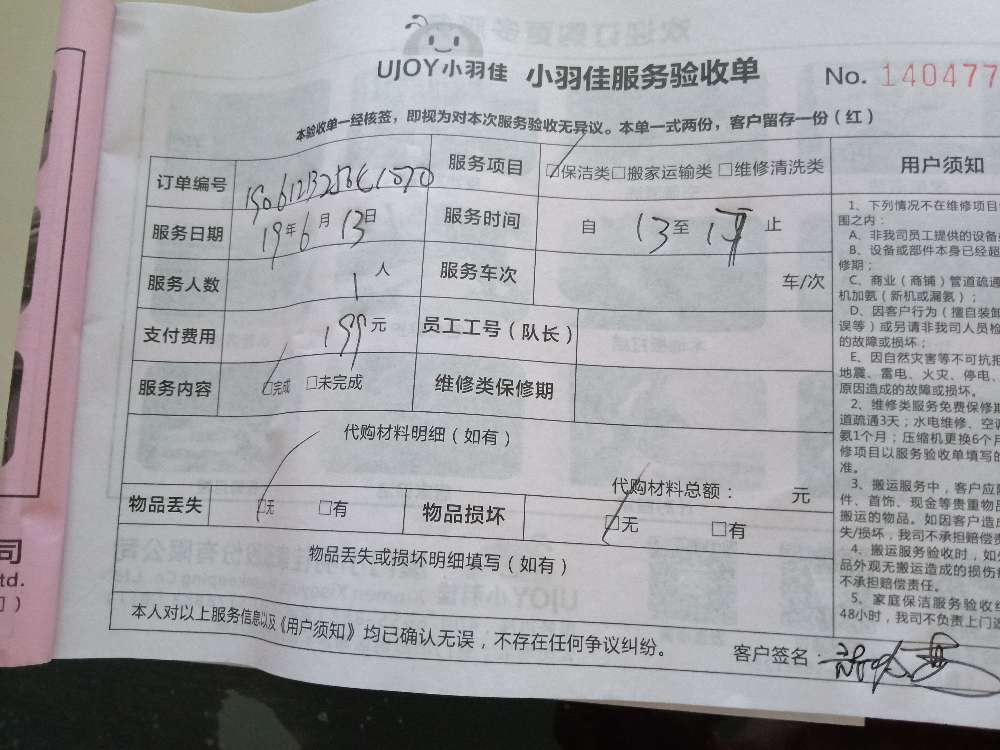 UJOY小羽佳 小羽佳服务验收单 No. 140477
本验收单一经核签，即视为对本次服务验收无异议。本单一式两份，客户留存一份（红）
订单编号 服务项目 ☑保洁类□搬家运输类□维修清洗类 用户须知
服务日期 19年6月13日 服务时间 自 13 至 17 止
服务人数 1 人 服务车次 车/次
支付费用 199元 员工工号（队长）
服务内容 ☑完成 □未完成 维修类保修期
代购材料明细（如有）
代购材料总额： 元
物品丢失 ☑无 □有 物品损坏 ☑无 □有
物品丢失或损坏明细填写（如有）
本人对以上服务信息以及《用户须知》均已确认无误，不存在任何争议纠纷。
客户签名：
1、下列情况不在维修项目
围之内：
A、非我司员工提供的设备
B、设备或部件本身已经超
修期；
C、商业（商铺）管道疏通
机加氨（新机或漏氨）；
D、因客户行为（擅自装卸
误等）或另请非我司人员检
的故障或损坏；
E、因自然灾害等不可抗拒
地震、雷电、火灾、停电、
原因造成的故障或损坏。
2、维修类服务免费保修期
道疏通3天；水电维修、空调
氨1个月；压缩机更换6个月
修项目以服务验收单填写的
准。
3、搬运服务中，客户应
件、首饰、现金等贵重物品
搬运的物品。如因客户造
失/损坏，我司不承担赔偿责
4、搬运服务验收时，如
品外观无搬运造成的损伤
不承担赔偿责任。
5、家庭保洁服务验收
48小时，我司不负责上门
司
td.